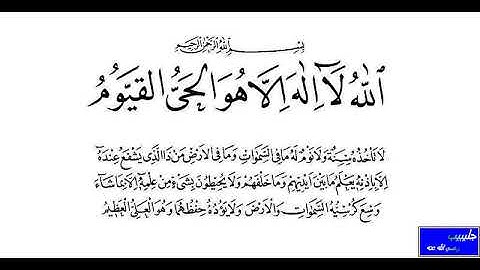 بِسْمِ اللهِ الرَّحْمٰنِ الرَّحِيمِ
اَللّٰهُ لَآ اِلٰهَ اِلَّا هُوَ الْحَيُّ الْقَيُّوْمُ
لَا تَأْخُذُهُ سِنَةٌ وَلَا نَوْمٌ لَهُ مَا فِي السَّمٰوَاتِ وَمَا فِي الْاَرْضِ مَنْ ذَا الَّذِي يَشْفَعُ عِنْدَهُ
اِلَّا بِاِذْنِهِ يَعْلَمُ مَا بَيْنَ اَيْدِيهِمْ وَمَا خَلْفَهُمْ وَلَا يُحِيطُونَ بِشَيْءٍ مِنْ عِلْمِهِ اِلَّا بِمَا شَاءَ
وَسِعَ كُرْسِيُّهُ السَّمٰوَاتِ وَالْاَرْضَ وَلَا يَؤُدُهُ حِفْظُهُمَا وَهُوَ الْعَلِيُّ الْعَظِيمُ
جليبيب
رضي الله عنه